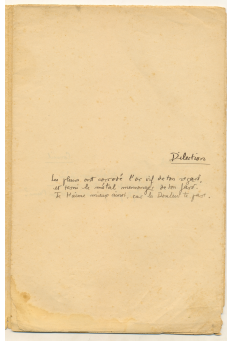 Dilection
Les pleurs ont corrodé l'or vif de ton regard,
et terni le métal mensonger de ton fard.
Je t'aime mieux ainsi, car la douleur te pare.